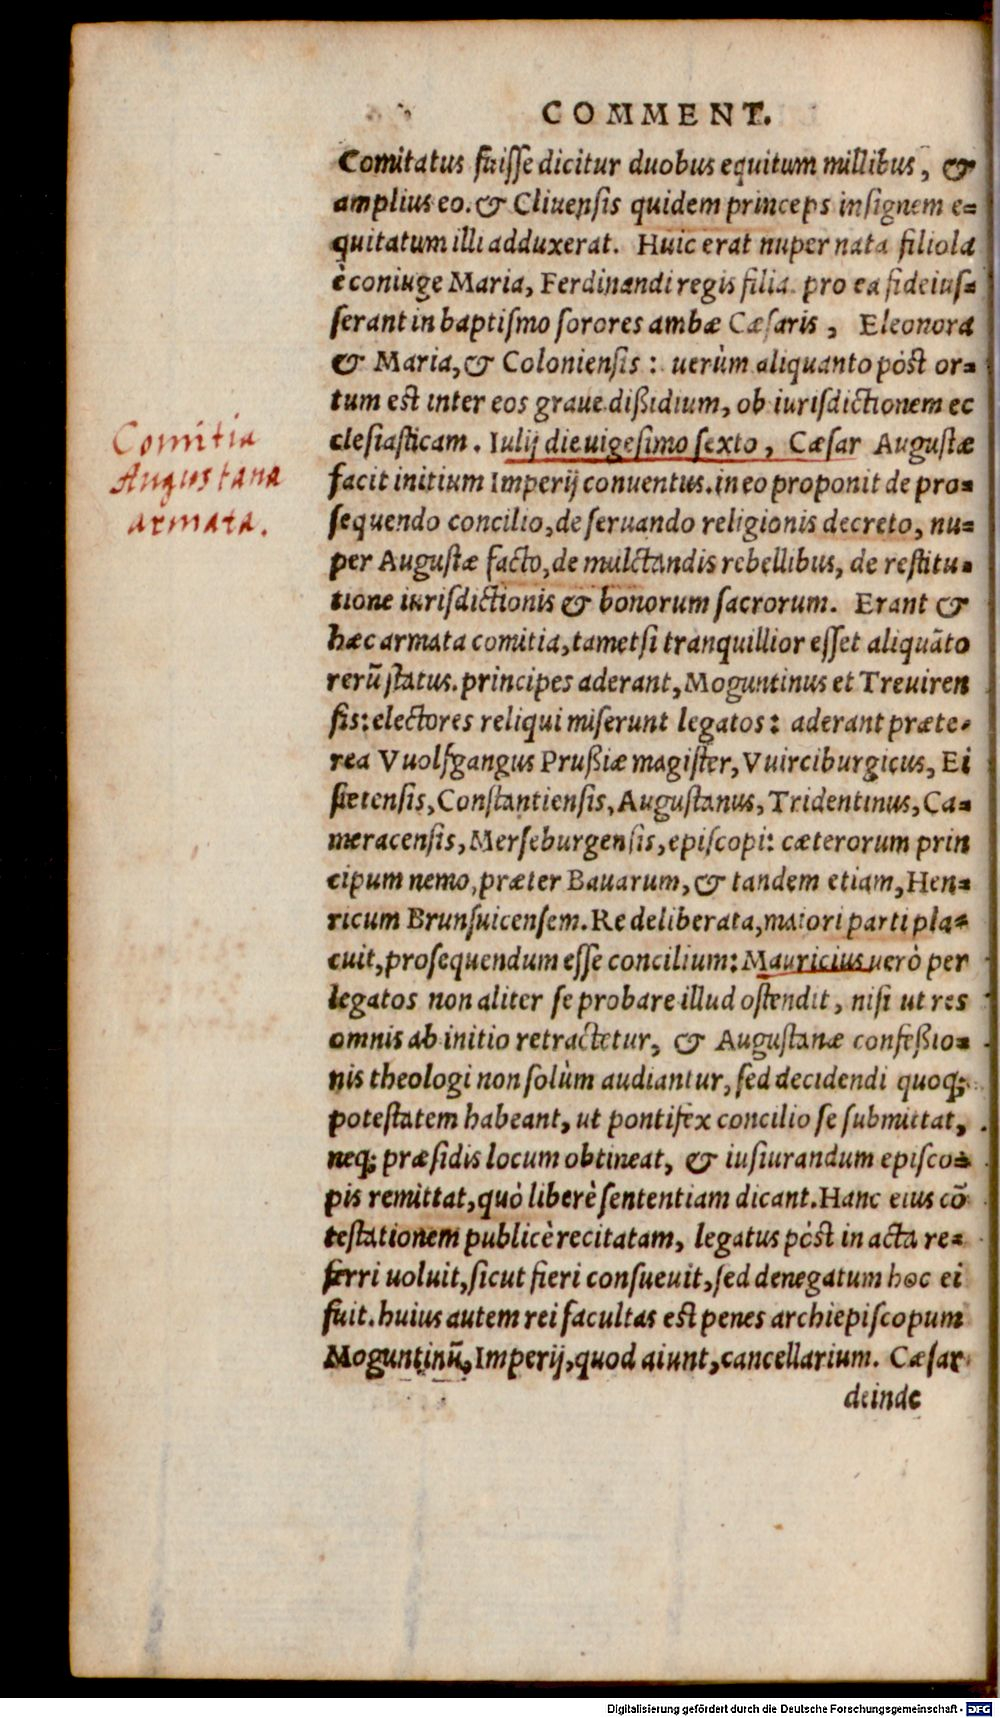 COMMENT.
Comitatus fuisse dicitur duobus equitum millibus, &
amplius eo. & Cliuensis quidem princeps insignem e-
quitatum illi adduxerat. Huic erat nuper nata filiola
è coniuge Maria, Ferdinandi regis filia. pro ea fideius-
serant in baptismo sorores ambæ Cæsaris, Eleonora
& Maria, & Coloniensis: uerùm aliquanto pòst or-
tum est inter eos graue dißidium, ob iurisdictionem ec
clesiasticam. Iulij die uigesimo sexto, Cæsar Augustæ
facit initium Imperij conuentus. in eo proponit de pro-
sequendo concilio, de seruando religionis decreto, nu-
per Augustæ facto, de mulctandis rebellibus, de restitu-
tione iurisdictionis & bonorum sacrorum. Erant &
hæc armata comitia, tametsi tranquillior esset aliquãto
rerũ status. principes aderant, Moguntinus et Treuiren
sis: electores reliqui miserunt legatos: aderant præte-
rea Vuolfgangus Prußiæ magister, Vuirciburgicus, Ei
stetensis, Constantiensis, Augustanus, Tridentinus, Ca-
meracensis, Merseburgensis, episcopi: cæterorum prin
cipum nemo, præter Bauarum, & tandem etiam, Hen-
ricum Brunsuicensem. Re deliberata, maiori parti pla-
cuit, prosequendum esse concilium: Mauricius uerò per
legatos non aliter se probare illud ostendit, nisi ut res
omnis ab initio retractetur, & Augustanæ confeßio-
nis theologi non solùm audiantur, sed decidendi quoq;
potestatem habeant, ut pontifex concilio se submittat,
neq; præsidis locum obtineat, & iusiurandum episco-
pis remittat, quò liberè sententiam dicant. Hanc eius cõ
testationem publicè recitatam, legatus pòst in acta re-
ferri uoluit, sicut fieri consueuit, sed denegatum hoc ei
fuit. huius autem rei facultas est penes archiepiscopum
Moguntinũ, Imperij, quod aiunt, cancellarium. Cæsar
deinde
Comitia
Augustana
armata.
Digitalisierung gefördert durch die Deutsche Forschungsgemeinschaft - DFG